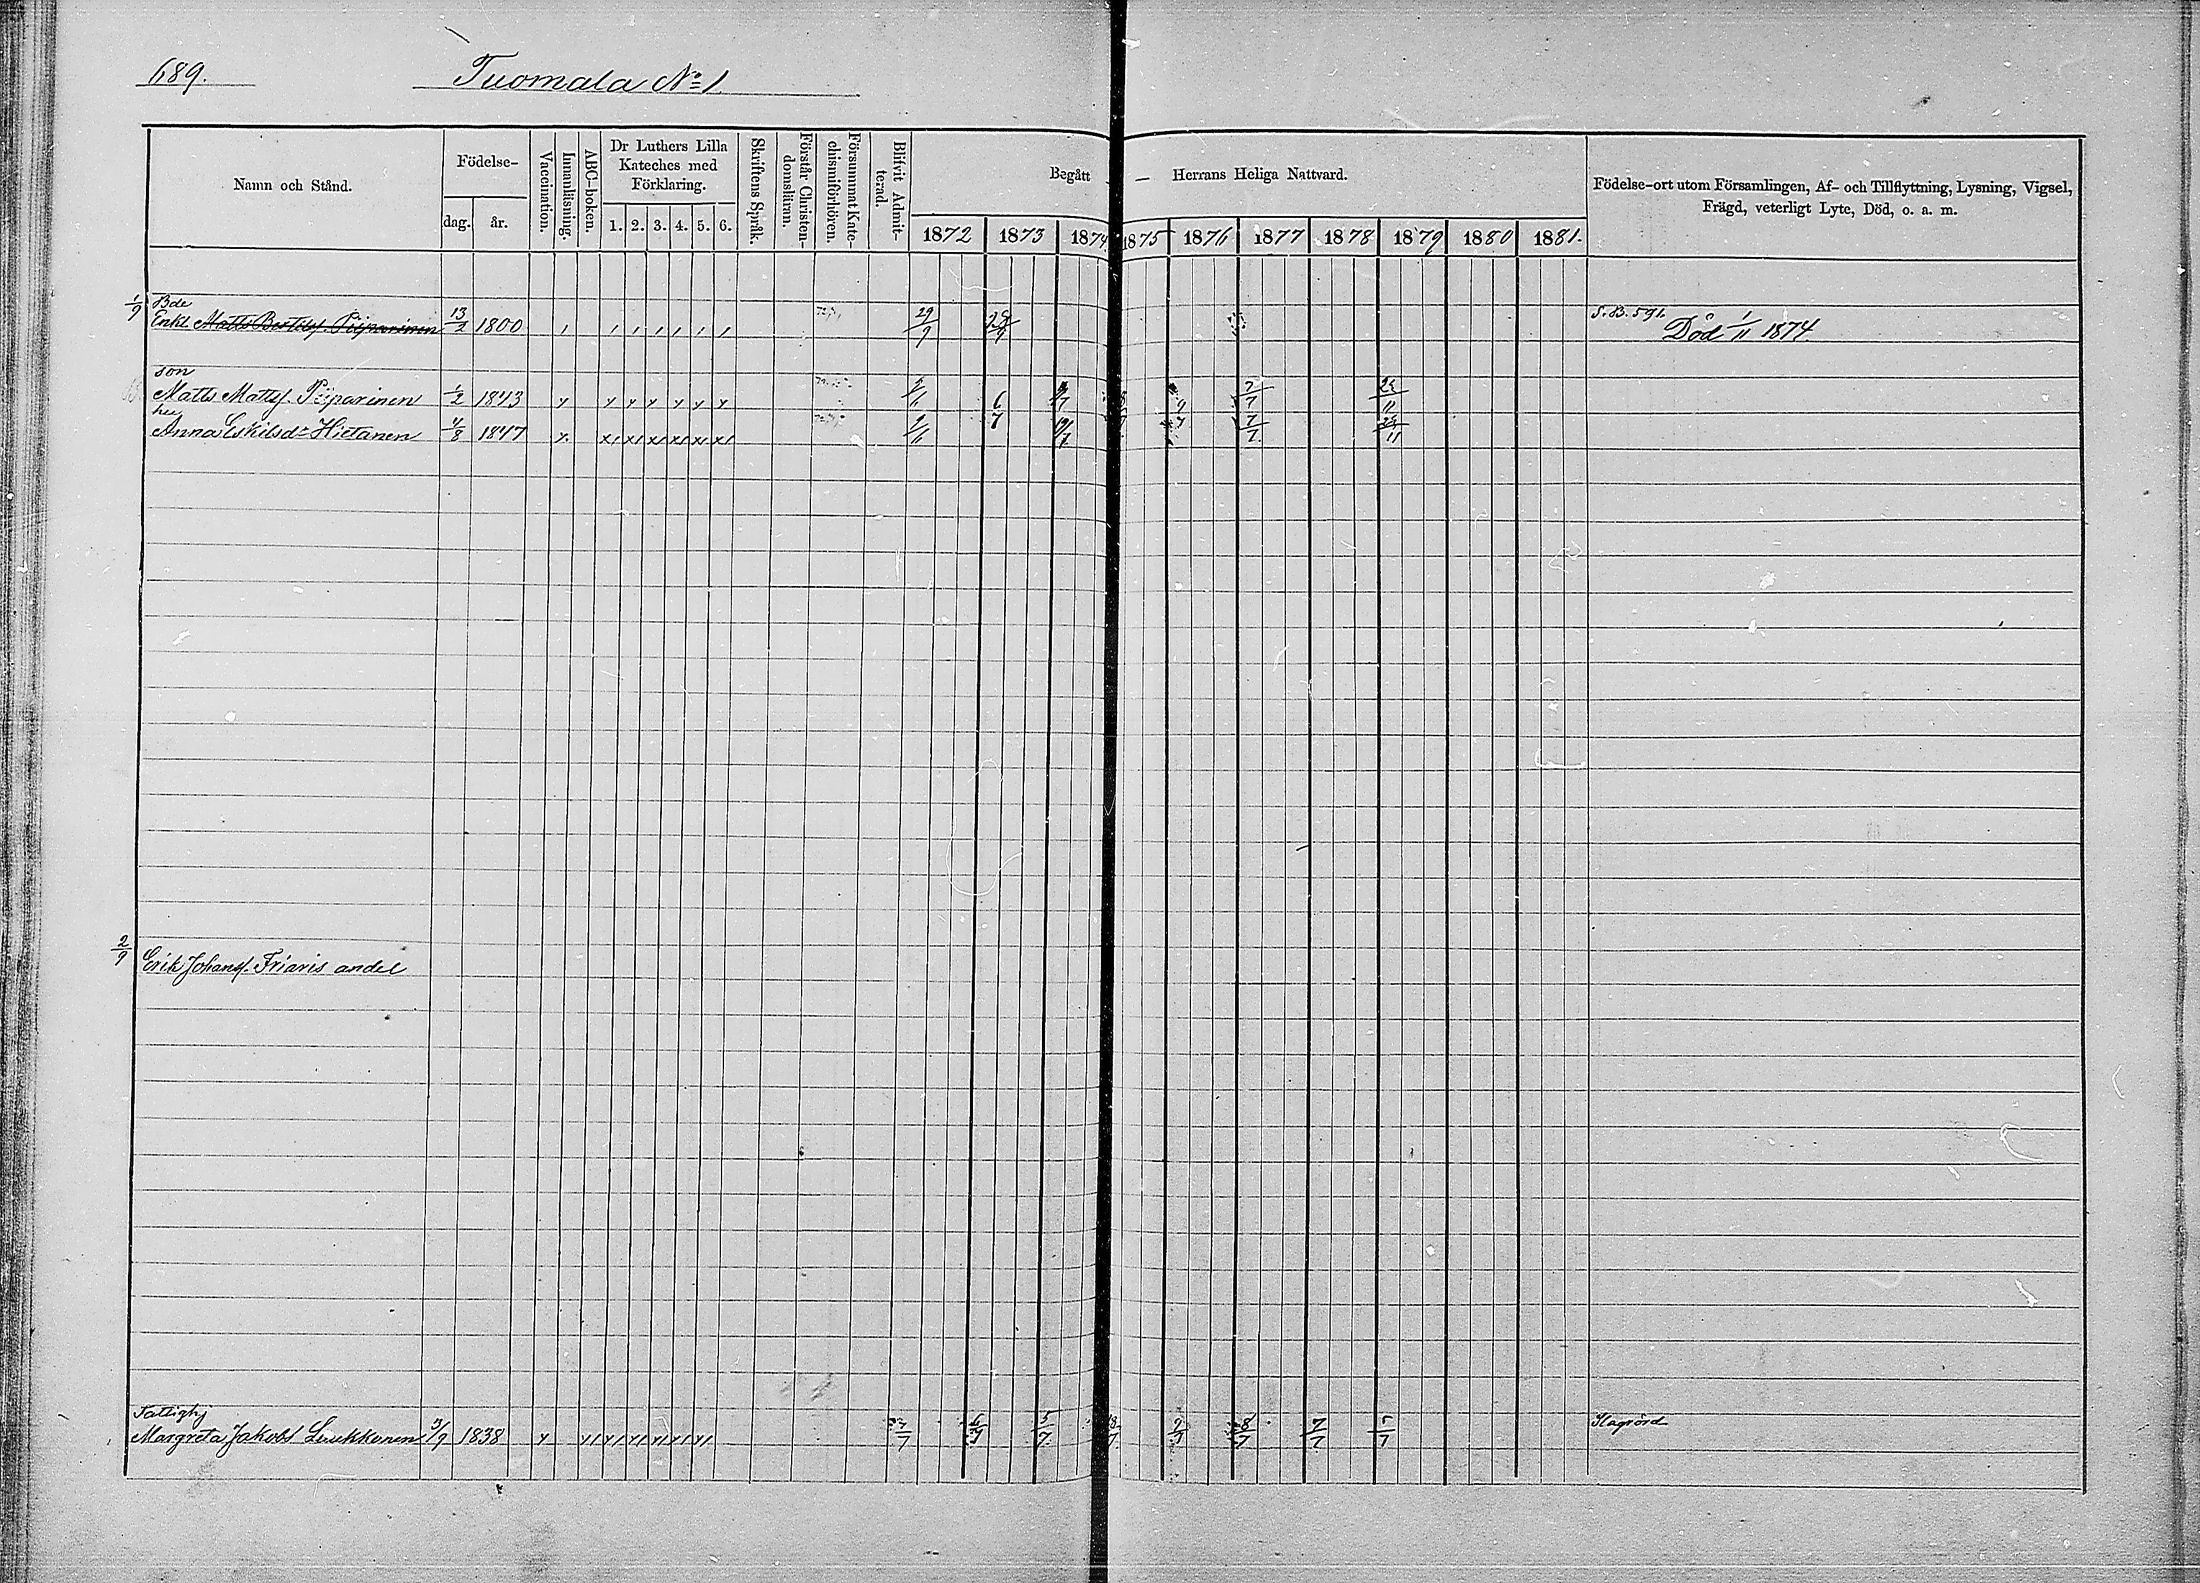 689.
Tuomala No 1
Namn och Stånd.
Födelse-
dag. år.
Vaccination.
Innanläsning.
ABC-boken.
Dr Luthers Lilla
Kateches med
Förklaring.
1. 2. 3. 4. 5. 6.
Skriftens Språk.
Förstår Christen-
domsläran.
Försummat Kate-
chismiförhören.
Blifvit Admit-
terad.
Begått — Herrans Heliga Nattvard.
1872 1873 1874 1875 1876 1877 1878 1879 1880 1881.
Födelse-ort utom Församlingen, Af- och Tillflyttning, Lysning, Vigsel,
Frägd, veterligt Lyte, Död, o. a. m.
1/9 Bde
Enkl. Matts Bertilsf. Piiparinen 13/2 1800 29/9 28/9 S.B. 591. Död 1/11 1874
son
Matts Mattsf. Piiparinen 1/2 1843 6/7 7/7
hu
Anna Eskilsdr Hietanen 4/8 1847 7/7
2/9 Erik Johansf. Friaris andel
Fattighj
Margreta Jakobsd Leukkunen 3/9 1838 6/7 5/7 18/7 9/7 8/7 7/7